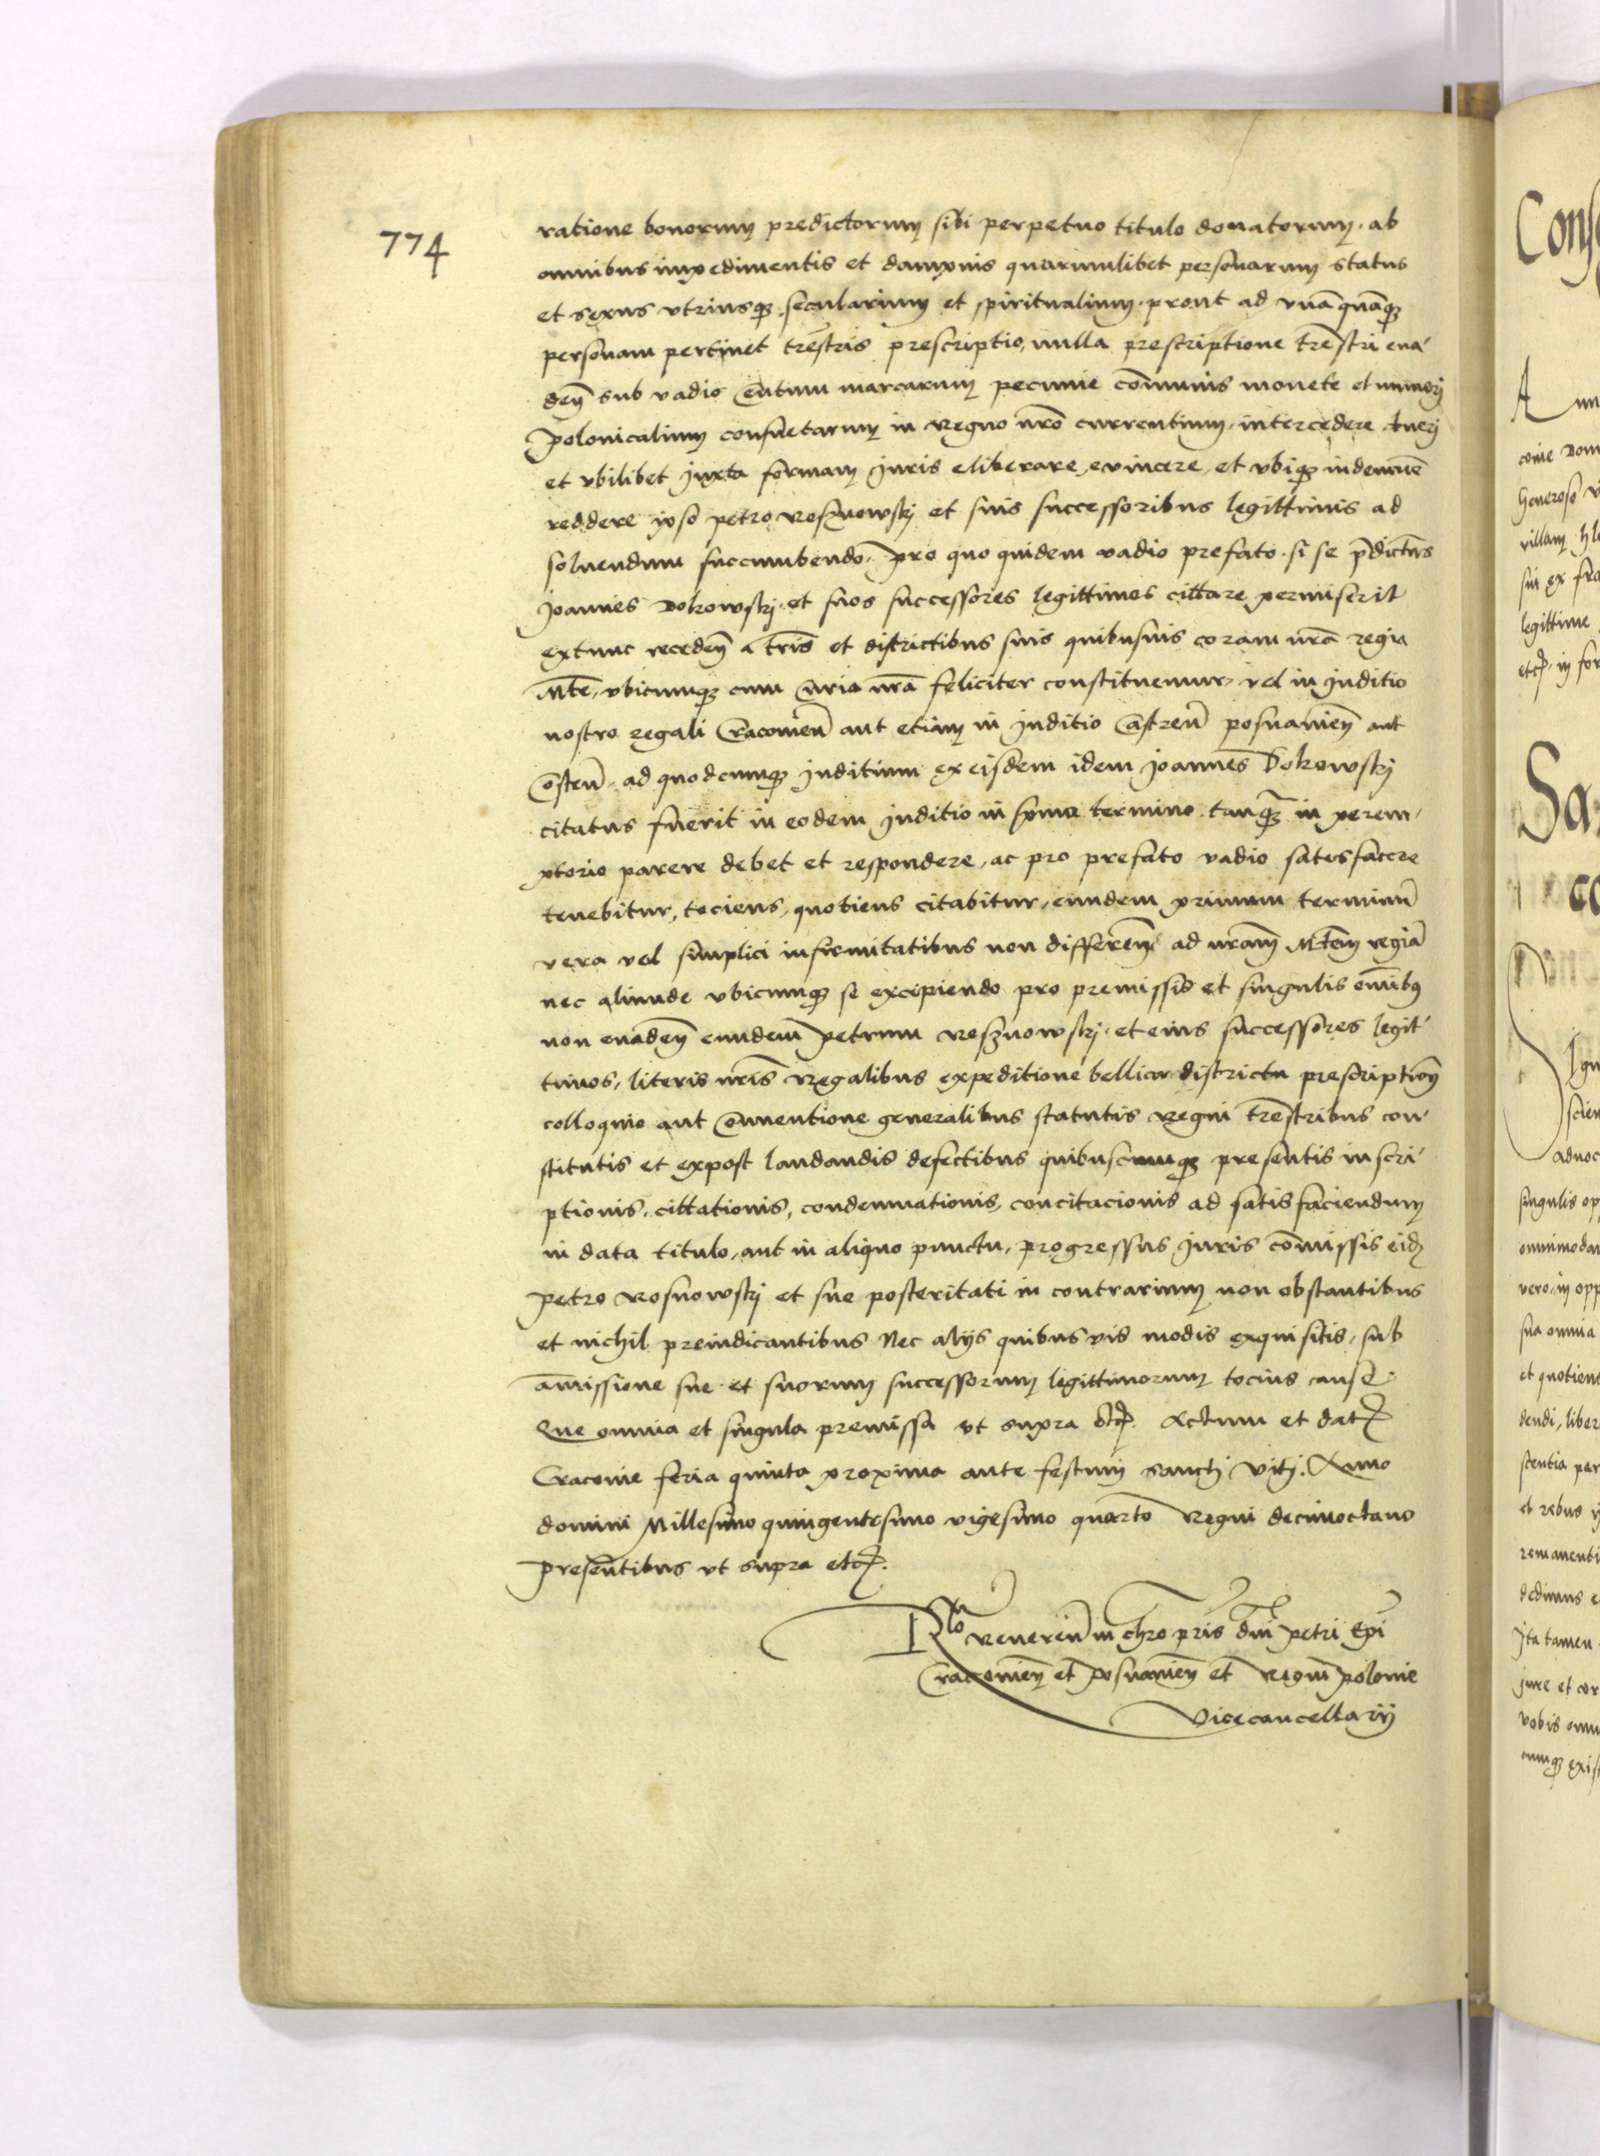 774
ratione bonorum predictorum sibi perpetuo titulo donatorum. ab
omnibus impedimentis et dampnis quarumlibet personarum status
et sexus vtriusq₃ secularium et spiritualium. prout ad vnāquāq₃
personam pertinet trēstris prescriptio, nulla prescriptione trēstri eua-
deñ sub vadio Centum marcarum pecunie cōmunis monete et numerj
polonicalium consuetarum in regno nr̄o currentium, intercedere tuerj
et vbilibet juxta formam juris eliberare, euincere, et vbiq₃ indemnē
reddere ipso petro rosnowskj et suis successoribus legittimis ad
soluendum succumbendo. pro quo quidem vadio prefato. si se p̄dictus
joannes Dokowskj. et suos successores legittimos cittare permiserit
extunc receden̄ a tr̄is et districtibus suis quibusuis coram nr̄a regia
Mte, vbicumq₃ cum Curia nr̄a feliciter constituemur, vel in juditio
nostro regali Cracouień aut etiam in juditio Castreń posnanień aut
Costeń. ad quodcumq₃ juditium ex eisdem idem joannes Dokowskj
citatus fuerit in eodem juditio in primo termino tanq₃ in perem-
ptorio parere debet et respondere, ac pro prefato vadio satisfacere
tenebitur, tociens, quotiens citabitur, eundem primum terminū
vera vel simplici infirmitatibus non differeñ ad nr̄am Mtem regiā
nec aliunde vbicumq₃ se excipiendo pro premissis et singulis omnibus
non euadeñ eundem petrum rosznowskj. et eius successores legit-
timos, literis nr̄is regalibus expeditione bellica districtu prescriptioñ
colloquio aut Conuentione generalibus statutis regni trēstribus con-
stitutis et expost laudandis defectibus quibuscumq₃ presentis inscri-
ptionis, cittationis, condemnationis, concitacionis ad satisfaciendum
in data titulo, aut in aliquo punctu, progressus juris cōmissis eid₃
petro rosnowskj et sue posteritati in contrarium non obstantibus
et nichil preiudicantibus Nec alijs quibusuis modis exquisitis, sub
amissione sue et suorum successorum legittimorum tocius cause.
Que omnia et singula premissa vt supra etc. Actum et dat
Cracouie feria quinta proxima ante festum sanctj vitj. Anno
domini Millesimo quingentesimo vigesimo quarto Regni decimoctauo
presentibus vt supra etc.
Rlo reueren̄ in chro pris dnī petri Epi
Cracouień et posnanień et regni polonie
vicecancellarij